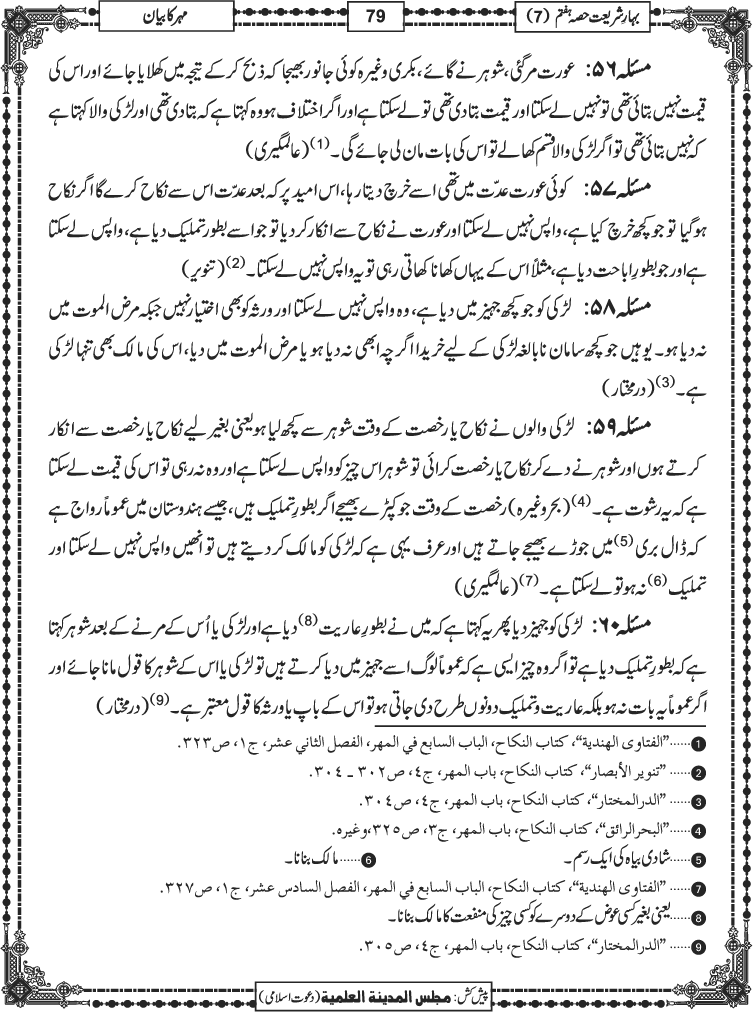 بہارِ شریعت حصہ ہفتم (7)
79
مہر کا بیان
مسئلہ ۵۶: عورت مرگئی، شوہر نے گائے، بکری وغیرہ کوئی جانور بھیجا کہ ذبح کر کے تیجہ میں کھلایا جائے اور اس کی
قیمت نہیں بتائی تھی تو نہیں لے سکتا اور قیمت بتا دی تھی تو لے سکتا ہے اور اگر اختلاف ہو وہ کہتا ہے کہ بتا دی تھی اور لڑکی والا کہتا ہے
کہ نہیں بتائی تھی تو اگر لڑکی والا قسم کھالے تو اس کی بات مان لی جائے گی۔(1) (عالمگیری)
مسئلہ ۵۷: کوئی عورت عدّت میں تھی اسے خرچ دیتا رہا، اس امید پر کہ بعد عدّت اس سے نکاح کرے گا اگر نکاح
ہوگیا تو جو کچھ خرچ کیا ہے، واپس نہیں لے سکتا اور عورت نے نکاح سے انکار کر دیا تو جو اسے بطور تملیک دیا ہے، واپس لے سکتا
ہے اور جو بطورِ اباحت دیا ہے، مثلاً اس کے یہاں کھانا کھاتی رہی تو یہ واپس نہیں لے سکتا۔(2) (تنویر)
مسئلہ ۵۸: لڑکی کو جو کچھ جہیز میں دیا ہے، وہ واپس نہیں لے سکتا اور ورثہ کو بھی اختیار نہیں جبکہ مرض الموت میں
نہ دیا ہو۔ یوہیں جو کچھ سامان نابالغہ لڑکی کے لیے خریدا اگرچہ ابھی نہ دیا ہو یا مرض الموت میں دیا، اس کی مالک بھی تنہا لڑکی
ہے۔(3) (درمختار)
مسئلہ ۵۹: لڑکی والوں نے نکاح یا رخصت کے وقت شوہر سے کچھ لیا ہو یعنی بغیر لیے نکاح یا رخصت سے انکار
کرتے ہوں اور شوہر نے دے کر نکاح یا رخصت کرائی تو شوہر اس چیز کو واپس لے سکتا ہے اور وہ نہ رہی تو اس کی قیمت لے سکتا
ہے کہ یہ رشوت ہے۔(4) (بحر وغیرہ) رخصت کے وقت جو کپڑے بھیجے اگر بطورِ تملیک ہیں، جیسے ہندوستان میں عموماً رواج ہے
کہ ڈال بری(5) میں جوڑے بھیجے جاتے ہیں اور عرف یہی ہے کہ لڑکی کو مالک کر دیتے ہیں تو انھیں واپس نہیں لے سکتا اور
تملیک(6) نہ ہو تو لے سکتا ہے۔(7) (عالمگیری)
مسئلہ ۶۰: لڑکی کو جہیز دیا پھر یہ کہتا ہے کہ میں نے بطورِ عاریت(8) دیا ہے اور لڑکی یا اُس کے مرنے کے بعد شوہر کہتا
ہے کہ بطورِ تملیک دیا ہے تو اگر وہ چیز ایسی ہے کہ عموماً لوگ اسے جہیز میں دیا کرتے ہیں تو لڑکی یا اس کے شوہر کا قول مانا جائے اور
اگر عموماً یہ بات نہ ہو بلکہ عاریت و تملیک دونوں طرح دی جاتی ہو تو اس کے باپ یا ورثہ کا قول معتبر ہے۔(9) (درمختار)
1......"الفتاوی الهندية"، کتاب النکاح، الباب السابع في المهر، الفصل الثاني عشر، ج۱، ص۳۲۳.
2......"تنویر الأبصار"، کتاب النکاح، باب المهر، ج٤، ص۳۰۲ ـ ۳۰٤.
3......"الدرالمختار"، کتاب النکاح، باب المهر، ج٤، ص۳۰٤.
4......"البحرالرائق"، کتاب النکاح، باب المهر، ج۳، ص۳۲۵،وغیرہ.
5......شادی بیاہ کی ایک رسم۔ 6......مالک بنانا۔
7......"الفتاوی الهندية"، کتاب النکاح، الباب السابع في المهر، الفصل السادس عشر، ج۱، ص۳۲۷.
8......یعنی بغیر کسی عوض کے دوسرے کو کسی چیز کی منفعت کا مالک بنانا۔
9......"الدرالمختار"، کتاب النکاح، باب المهر، ج٤، ص۳۰۵.
پیش کش: مجلس المدينة العلمية (دعوت اسلامی)